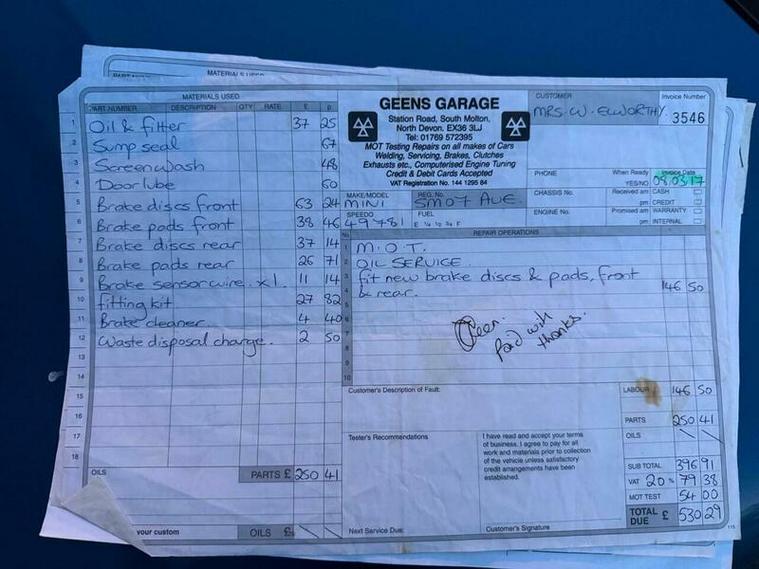 MATERIALS USED
PART NUMBER DESCRIPTION QTY RATE £ p
1 Oil & filter 37 25
2 Sump seal 67
3 Screenwash 48
4 Door lube 60
5 Brake discs front 63 24
6 Brake pads front 38 46
7 Brake discs rear 37 14
8 Brake pads rear 26 71
9 Brake sensor wire. x1. 11 14
10 fitting kit 27 82
11 Brake cleaner. 4 40
12 Waste disposal charge. 2 50
13
14
15
16
17
18
OILS
PARTS £ 250 41
your custom
OILS £
GEENS GARAGE
Station Road, South Molton,
North Devon. EX36 3LJ
Tel: 01769 572395
MOT Testing Repairs on all makes of Cars
Welding, Servicing, Brakes, Clutches
Exhausts etc., Computerised Engine Tuning
Credit & Debit Cards Accepted
VAT Registration No. 144 1295 84
CUSTOMER
MRS. W. ELWORTHY.
Invoice Number
3546
PHONE
When Ready
YES/NO
Invoice Date
08.03.17
MAKE/MODEL
MINI
REG. No.
SM07 AUE.
CHASSIS No.
Received am CASH
pm CREDIT
SPEEDO
49781
FUEL
E ¼ ½ ¾ F
ENGINE No.
Promised am WARRANTY
pm INTERNAL
No. REPAIR OPERATIONS
1 M.O.T.
2 OIL SERVICE
3 fit new brake discs & pads, front
4 & rear. 146 50
5
6
7
8
9
10
Paid with
thanks.
Customer's Description of Fault:
LABOUR 146 50
PARTS 250 41
OILS
Tester's Recommendations
I have read and accept your terms
of business. I agree to pay for all
work and materials prior to collection
of the vehicle unless satisfactory
credit arrangements have been
established.
SUB TOTAL 396 91
VAT 20 % 79 38
MOT TEST 54 00
TOTAL DUE £ 530 29
Next Service Due:
Customer's Signature